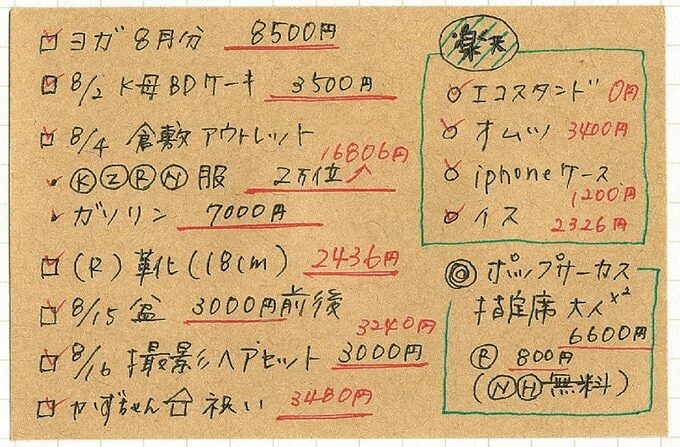 ヨガ 8月分 8500円
8/2 K母BDケーキ 3500円
8/4 倉敷アウトレット
16806円
ⓀⓏⓇⓃ服 2万位
ガソリン 7000円
(R) 革化(18cm) 2436円
8/15 盆 3000円前後
3240円
8/16 撮影ヘアセット 3000円
かずちゃん 祝い 3480円
楽天
エコスタンド 0円
オムツ 3400円
iphoneケース
1200円
イス 2326円
◎ ポップサーカス
指定席 大人×2
6600円
Ⓡ 800円
(ⓃⒽ無料)